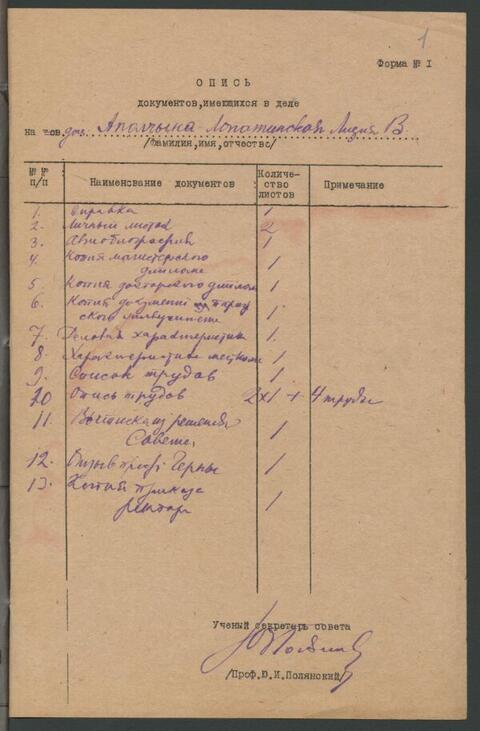 1
Форма № I
ОПИСЬ
документов,имеющихся в деле
на тов. доц. Аполчына-Лопатинская Лидия В.
/фамилия,имя,отчество/
№№ п/п Наименование документов Количе-ство листов Примечание
1. Справка 1
2. Личный листок 2
3. Автобиография 1
4. Копия магистерского
диплома 1
5. Копия докторского диплома 1
6. Копия
ского 1.
7. Деловая характеристика 1.
8. Характеристика 1.
9. Список трудов 1
10 Опись трудов 2х1 + 4 труды
11. Выписка из решения
Совета 1
12. Отзыв проф. Черны 1
13. Копия приказа
ректора 1
Ученый секретарь совета
/Проф.Ю.И.Полянский/